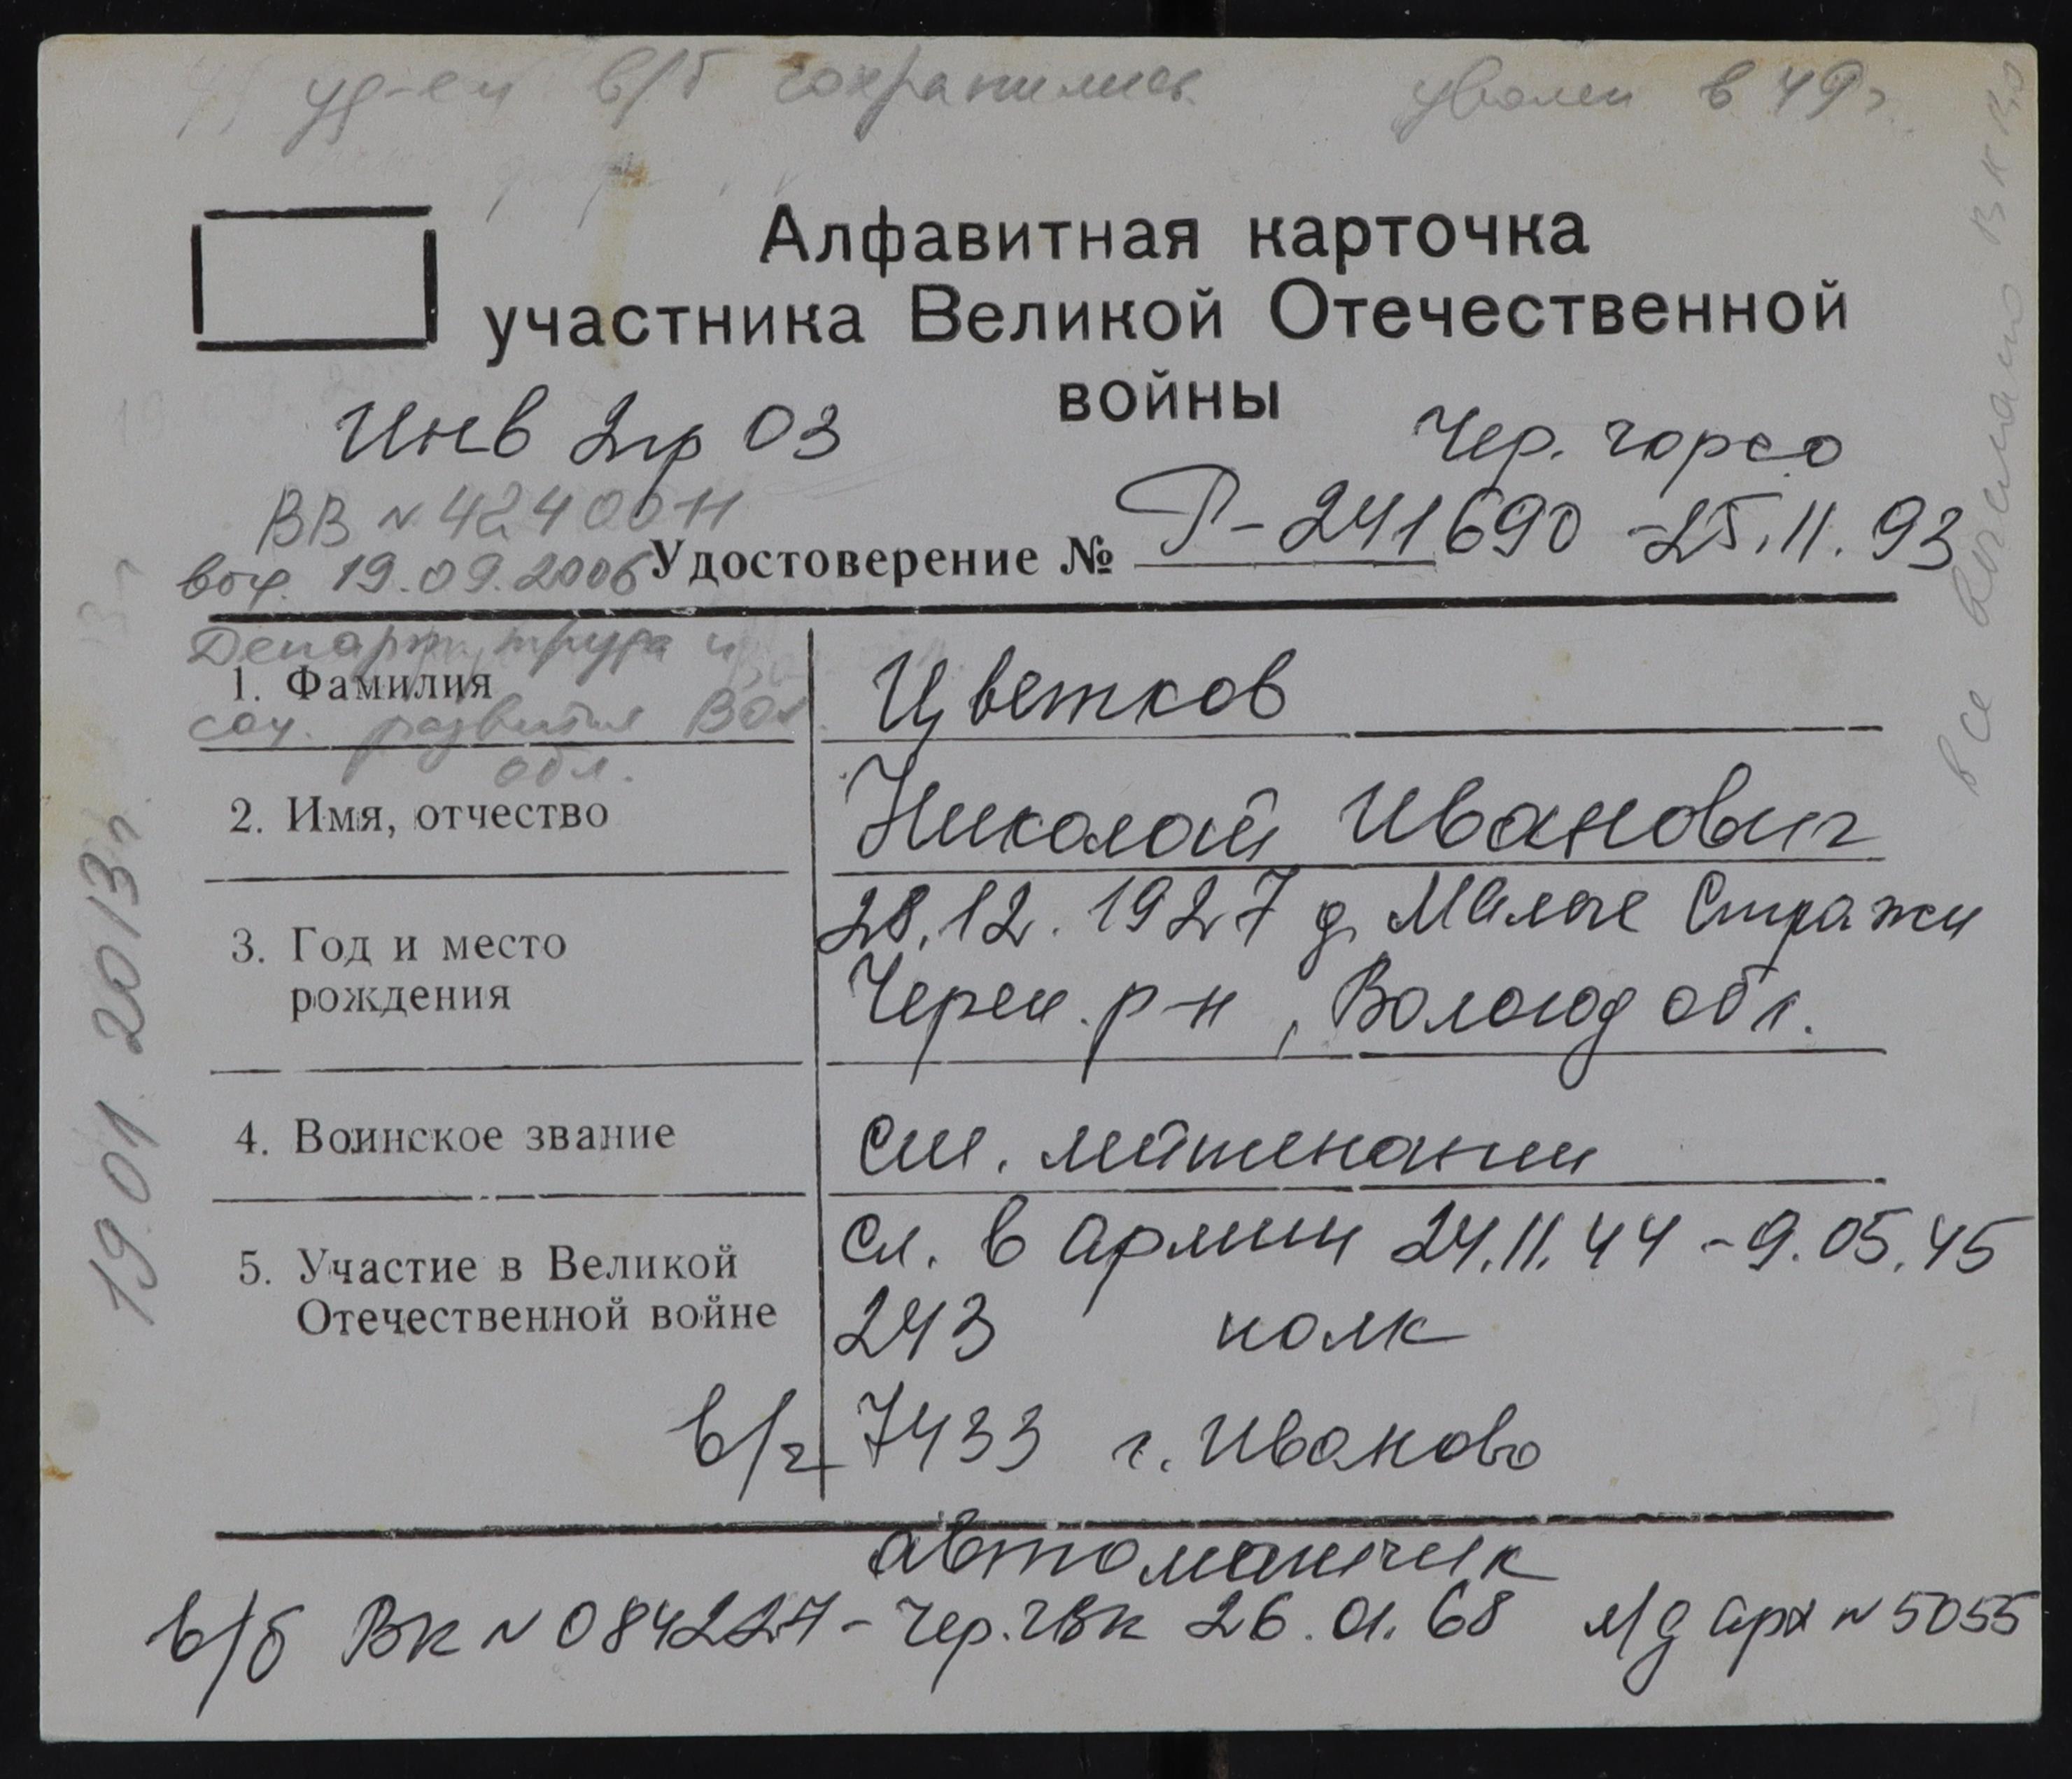 уд-ен в/б сохранились уволен в 49г.
Алфавитная карточка
участника Великой Отечественной
войны
Инв 2гр 03
Чер. горсо
ВВ № 4240011
Удостоверение № Р-241690 -25.11.93
выд. 19.09.2006
Департ. труда и
соц. развития Вол.
обл.
1. Фамилия Цветков
2. Имя, отчество Николай Иванович
3. Год и место
рождения
28.12.1927 д. Малые Стражи
Череп. р-н, Вологод обл.
4. Воинское звание
лейтенант
5. Участие в Великой
Отечественной войне
сл. в армии 24.11.44 - 9.05.45
243 полк
в/ч 7433 г. Иваново
автоматчик
в/б ВК № 084227 - Чер. ГВК 26.01.68 л/д арх № 5055
19.01.2013г.
все